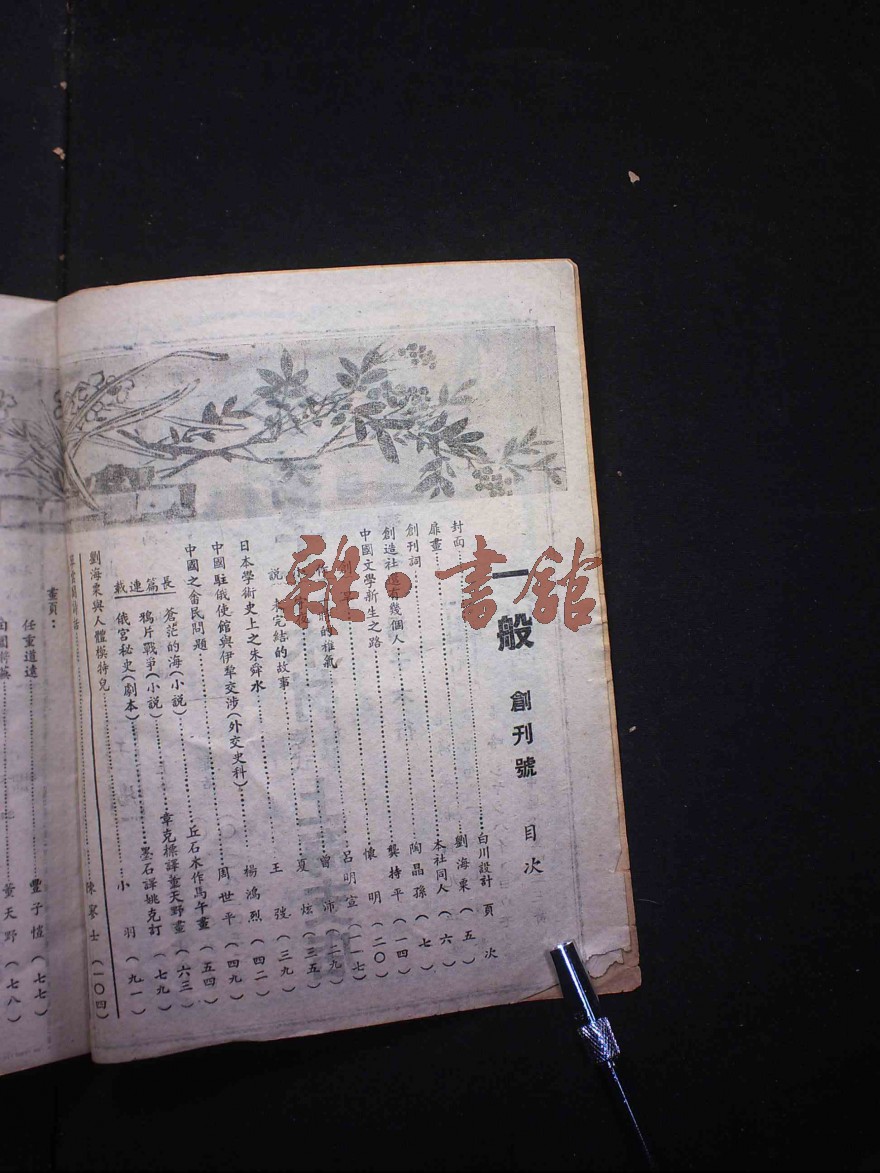 雜·書館
一般 創刊號 目次
頁次
封面 白川設計
扉畫 劉海粟（五）
創刊詞 本社同人（六）
創造社還有幾個人 陶晶孫（七）
中國文學新生之路 龔持平（一四）
懷明（二〇）
呂明宣（一七）
的稚氣 曾沛（二九）
夏炫（三五）
說 未完結的故事 王弢（三九）
日本學術史上之朱舜水 楊鴻烈（四二）
中國駐俄使館與伊犂交涉（外交史科） 周世平（四九）
中國之畲民問題
長篇連載
蒼茫的海（小說） 丘石木作馬午畫（五四）
鴉片戰爭（小說） 章克標譯董天野畫（六三）
俄宮秘史（劇本） 墨石譯姚克訂（七九）
小羽（九一）
劉海粟與人體模特兒 陳寒士（一〇四）
畫頁：
任重道遠 豐子愷（七七）
董天野（七八）